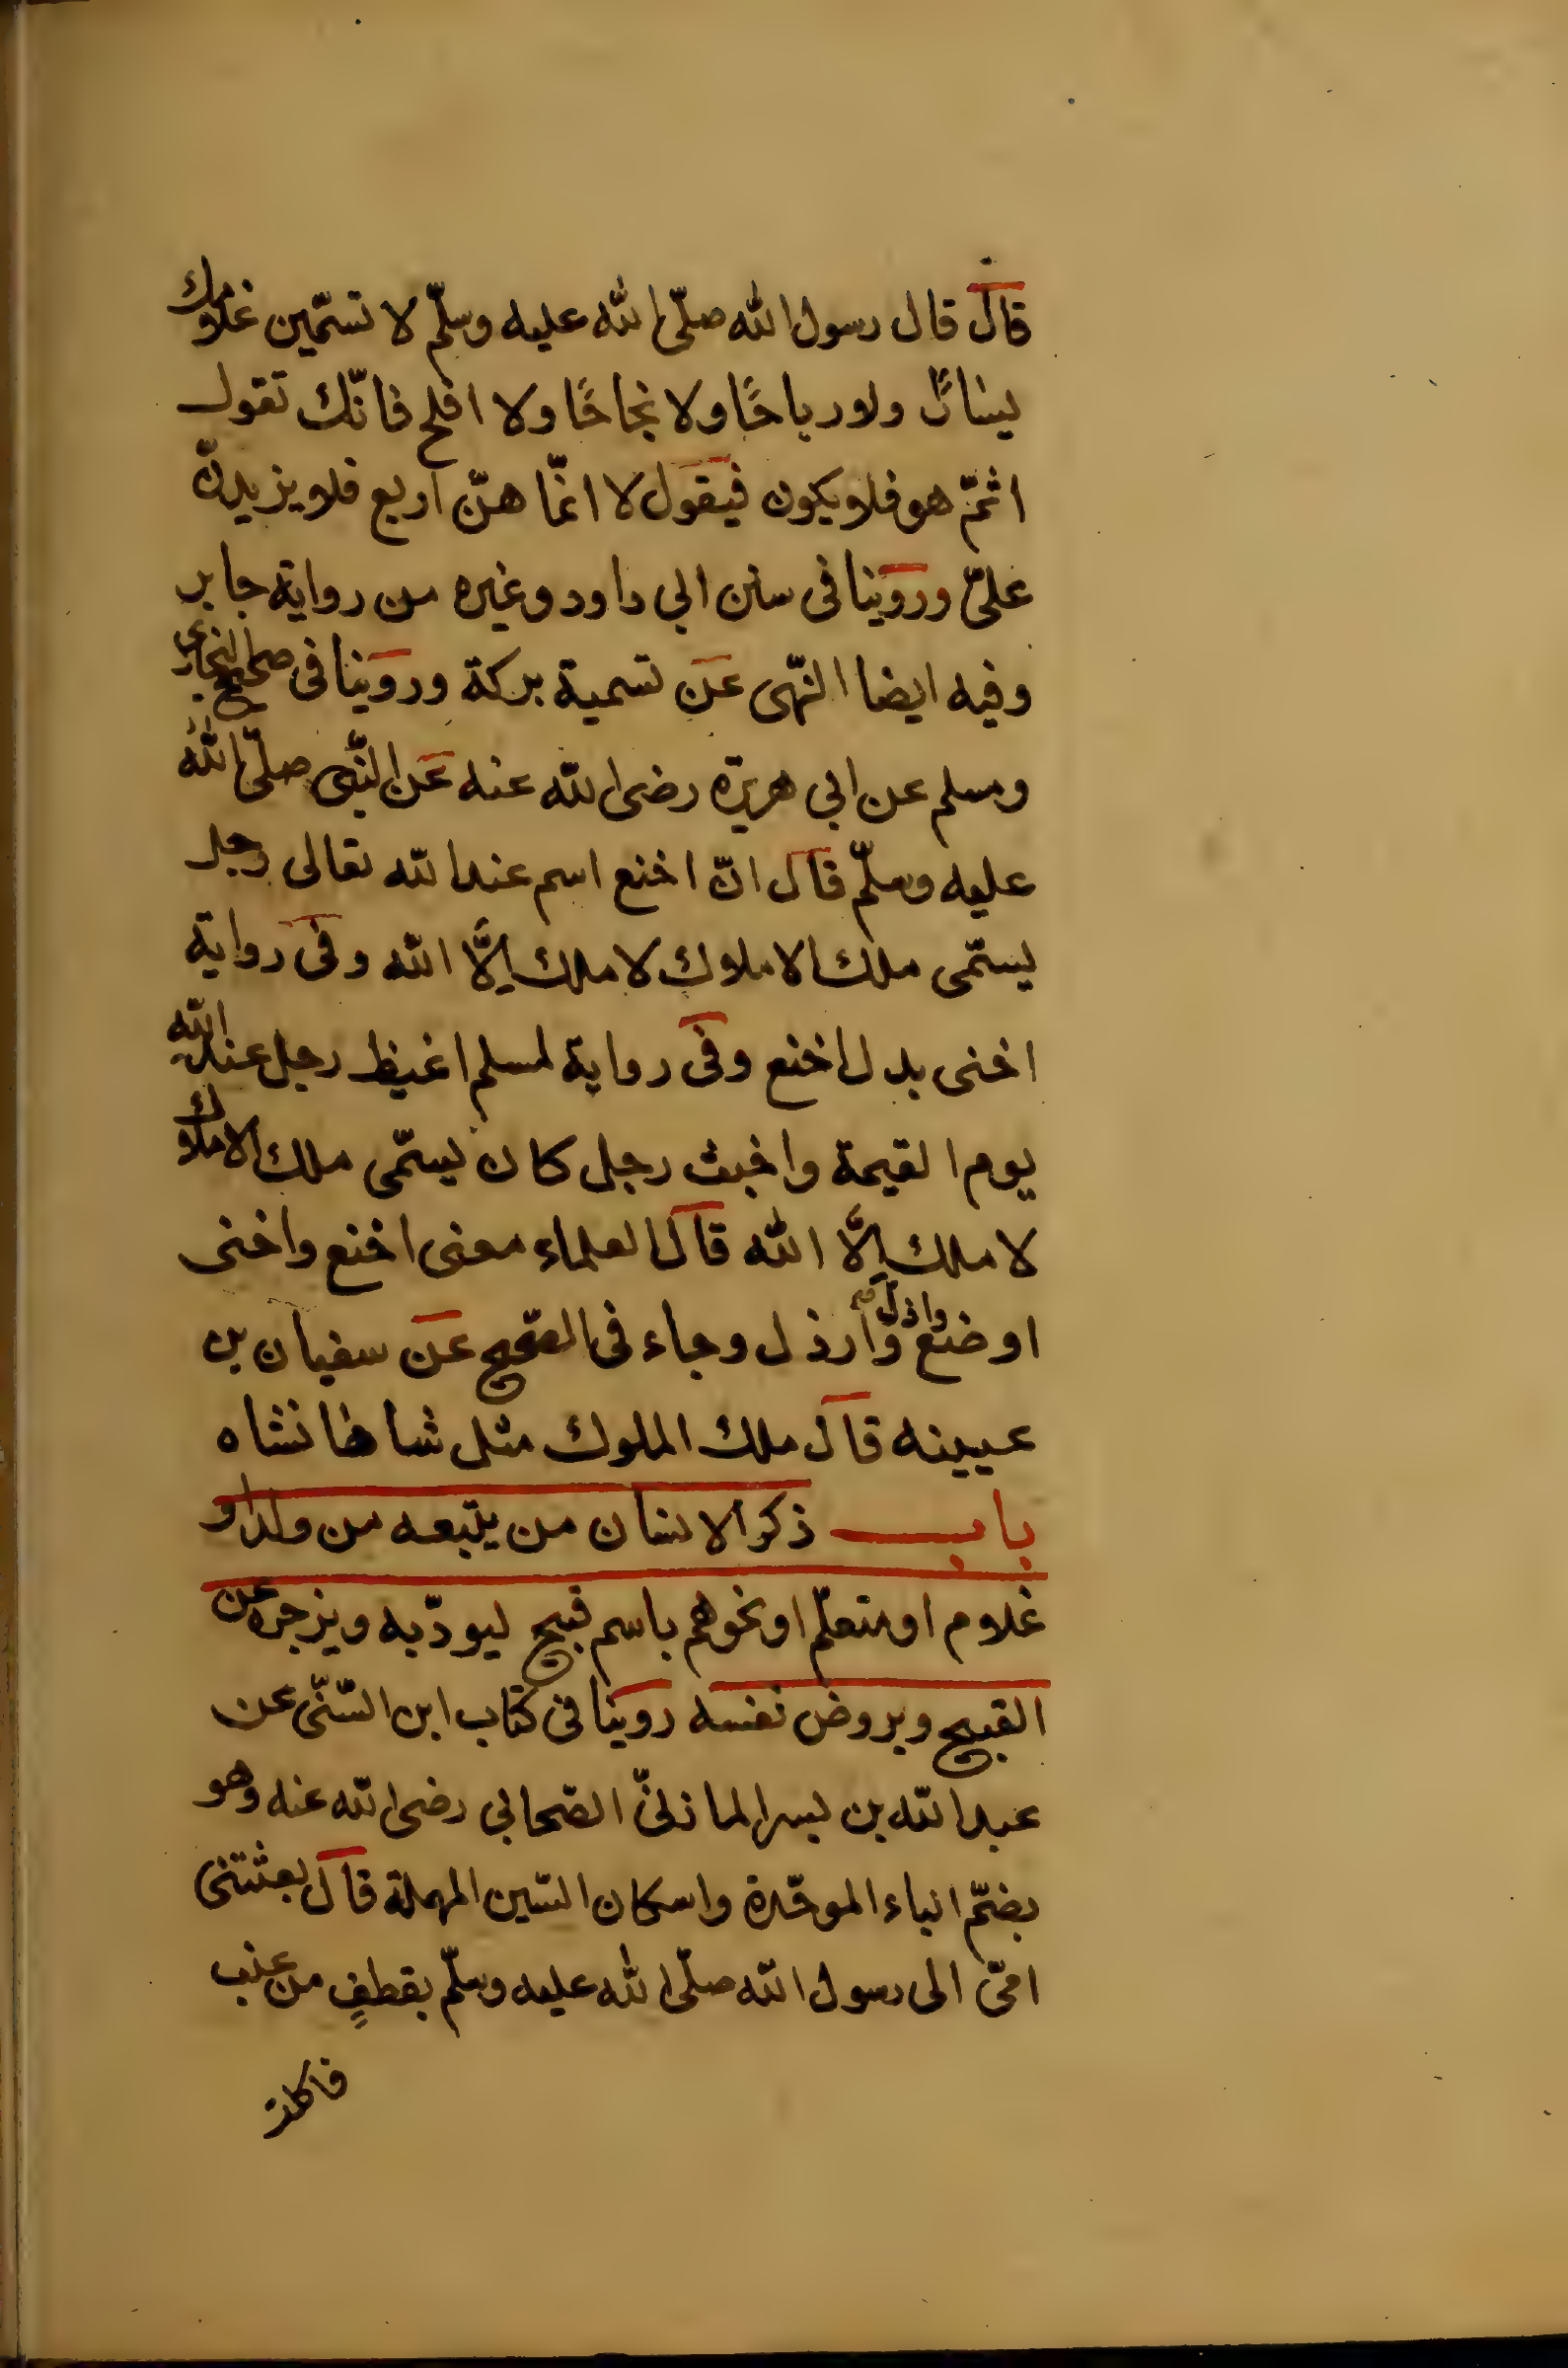 قال قال رسول الله صلّى الله عليه وسلّم لا تسمّين غلامك
يسارًا ولا رباحًا ولا نجاحًا ولا افلح فانّك تقول
اثمّ هو فلا يكون فيقول لا انمّا هنّ اربع فلا يزيدنّ
علىّ وروَينا فى سنن ابي داود وغيره من رواية جابر
وفيه ايضا النّهى عن تسمية بركة وروَينا فى صحيح البخارى
ومسلم عن ابي هريرة رضى الله عنه عن النّبى صلّى الله
عليه وسلّم قال انّ اخنع اسم عند الله تعالى رجل
يسمّى ملك الاملاك لا ملك إلَّا الله وفى رواية
اخنى بدل اخنع وفى رواية لمسلم اغيظ رجل عند الله
يوم القيمة واخبث رجل كان يسمّى ملك الاملاك
لا ملك إلَّا الله قال العلماء معنى اخنع واخنى
اوضع واذلّ وارذل وجاء فى الصّحيح عن سفيان بن
عيينه قال ملك الملوك مثل شاهانشاه
باب ذكر الانسان من يتبعه من ولد او
غلام او متعلّم او نحوهم باسم قبيح ليودّبه ويزجره عن
القبيح ويروض نفسه روَينا فى كتاب ابن السّنّى عن
عبد الله بن بسر المازنىّ الصّحابي رضى الله عنه وهو
بضمّ الباء الموحّدة واسكان السّين المهملة قال بعثتنى
امّى الى رسول الله صلّى الله عليه وسلّم بقطفٍ من عنب
فاكلت